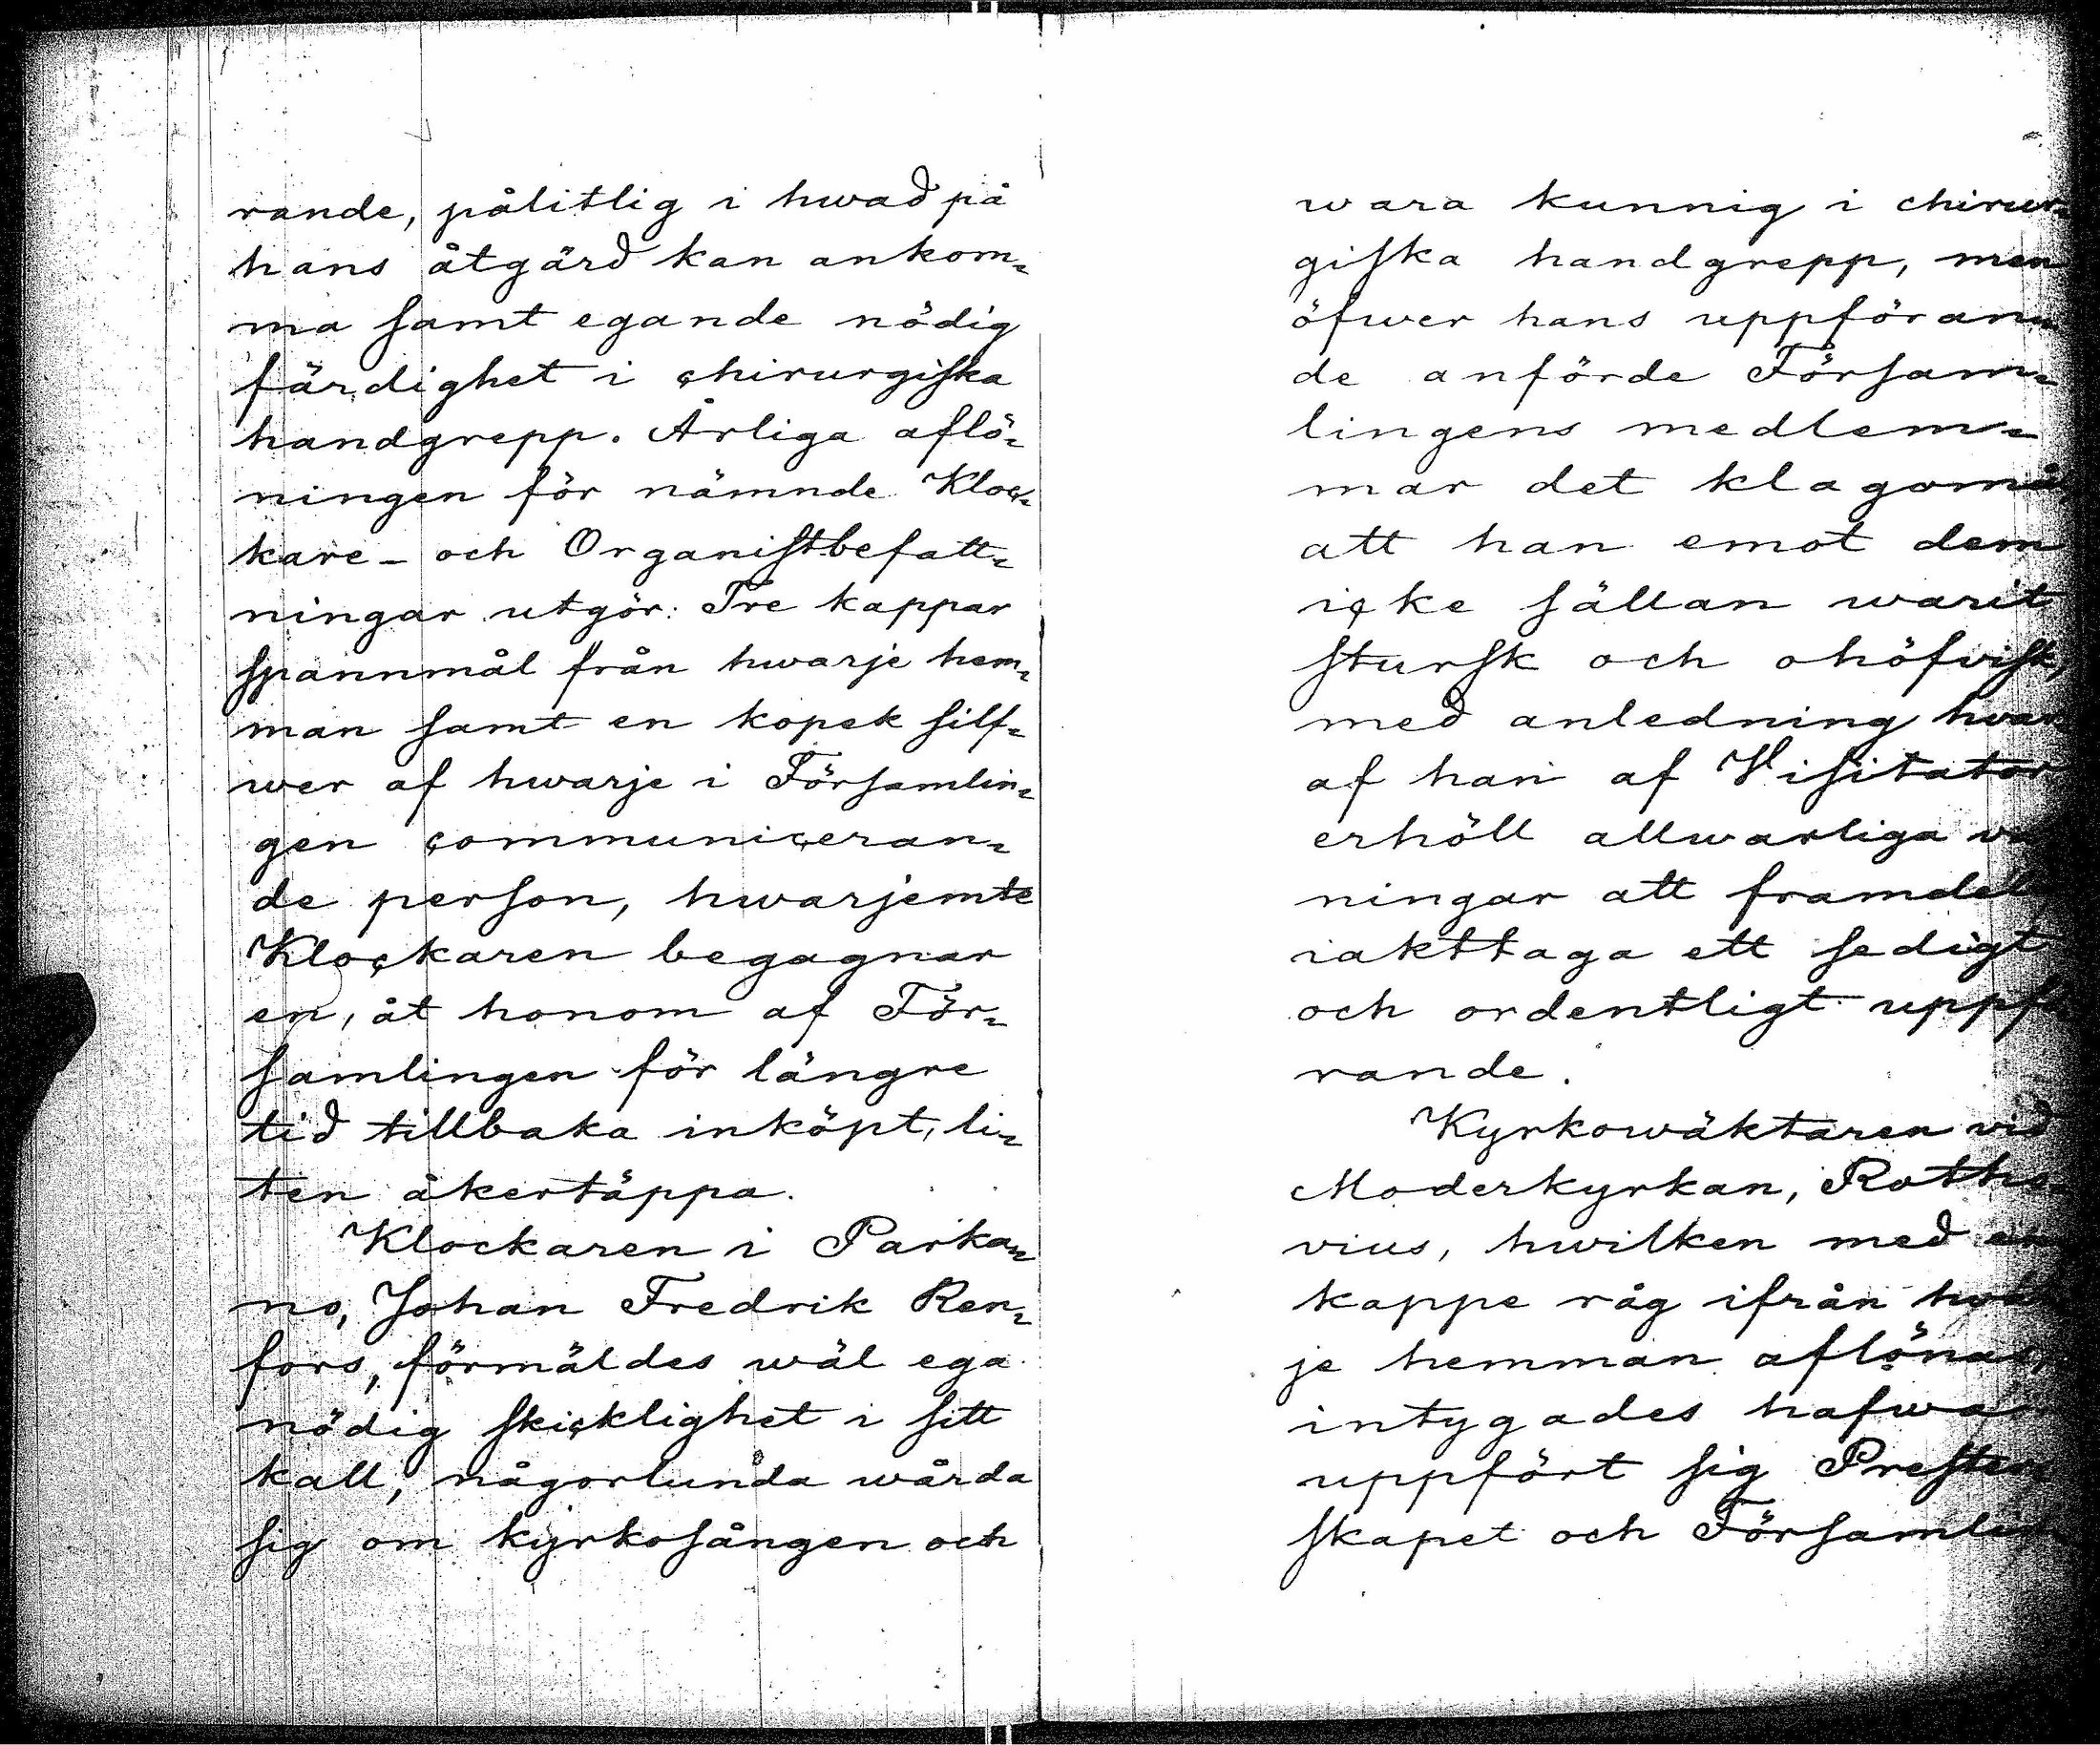 rande, pålitlig i hwad på
hans åtgärd kan ankom=
ma samt egande nödig
färdighet i chirurgiska
handgrepp. Årliga aflö=
ningen för nämnde Kloc=
kare- och Organistbefatt=
ningar utgör: Tre kappar
spannmål från hwarje hem=
man samt en kopek silf=
wer af hwarje i Församlin=
gen communiceran=
de person, hwarjemte
Klockaren begagnar
en, åt honom af För=
samlingen för längre
tid tillbaka inköpt, li=
ten åkertäppa.
Klockaren i Parka=
no, Johan Fredrik Ren=
fors, förmäldes wäl ega
nödig skicklighet i sitt
kall, någorlunda wårda
sig om kyrkosången och
wara kunnig i chirur=
giska handgrepp, men
öfwer hans uppföran=
de anförde Försam=
lingens medlem=
mar det klagomå
att han emot dem
icke sällan warit
stursk och ohöfvisk,
med anledning hwar
af han af Visitator
erhöll allwarliga
ningar att framdel
iakttaga ett sedigt
och ordentligt uppf
rande.
Kyrkowäktaren vid
Moderkyrkan, Rotho
vius, hwilken med en
kappe råg ifrån hwar
je hemman aflönas,
intygades hafwa
uppfört sig Prester
skapet och Församlin